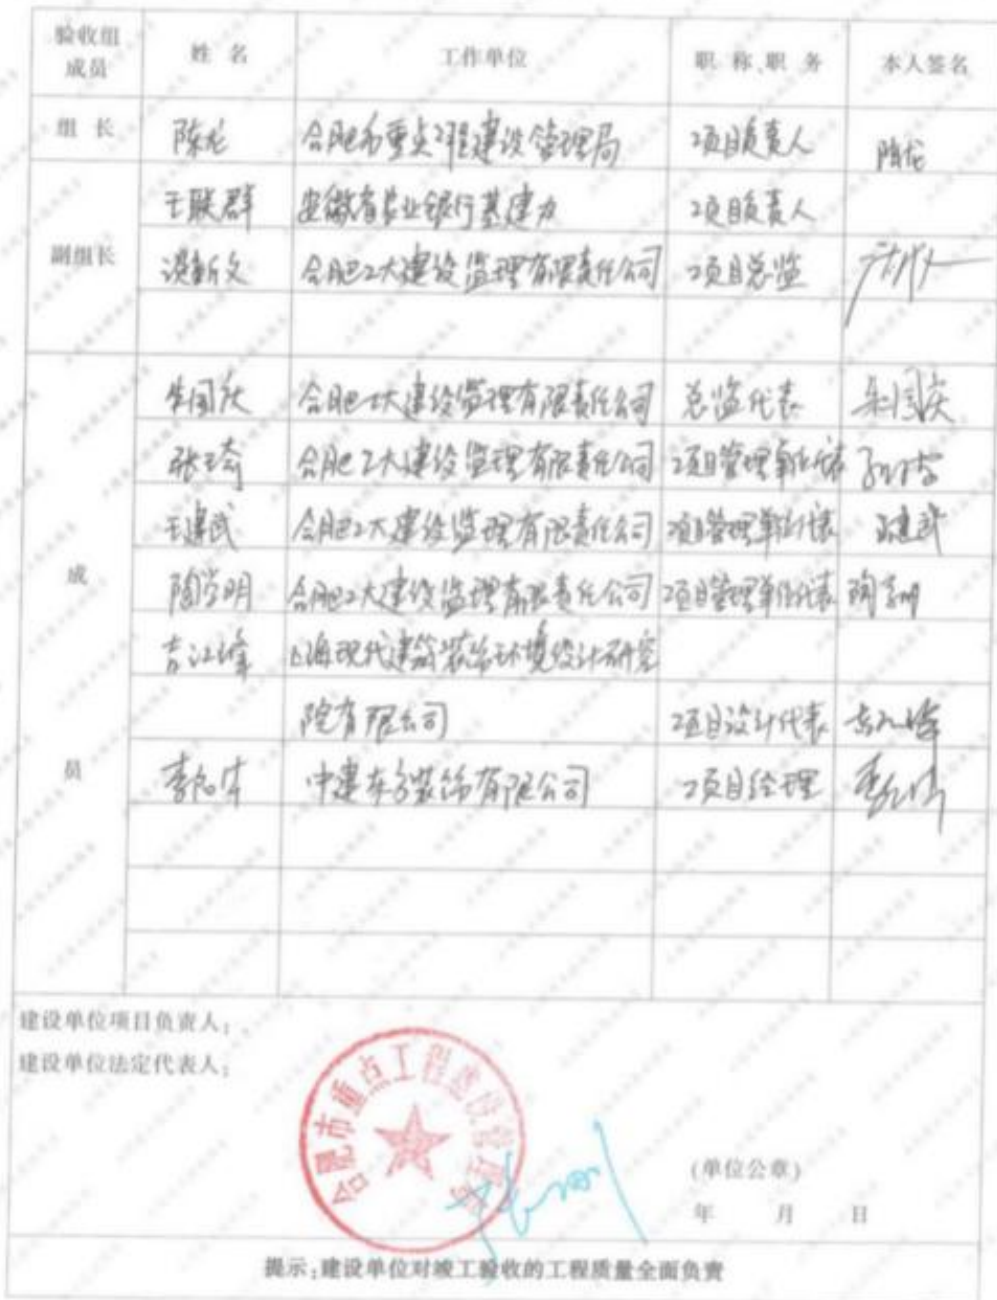 验收组成员 姓名 工作单位 职称、职务 本人签名
组长 陈龙 合肥市重点工程建设管理局 项目负责人 陈龙
王联群 安徽省农业银行基建办 项目负责人
副组长 谈新文 合肥工大建设监理有限责任公司 项目总监
朱国庆 合肥工大建设监理有限责任公司 总监代表 朱国庆
张琦 合肥工大建设监理有限责任公司 项目管理单位代表
王建武 合肥工大建设监理有限责任公司 项目管理单位代表 王建武
成 陶学明 合肥工大建设监理有限责任公司 项目管理单位代表 陶学明
吉江峰 上海现代建筑装饰环境设计研究
院有限公司 项目设计代表 吉江峰
员 中建东方装饰有限公司 项目经理
建设单位项目负责人:
建设单位法定代表人:
合肥市重点工程建设管理局
(单位公章)
年 月 日
提示:建设单位对竣工验收的工程质量全面负责